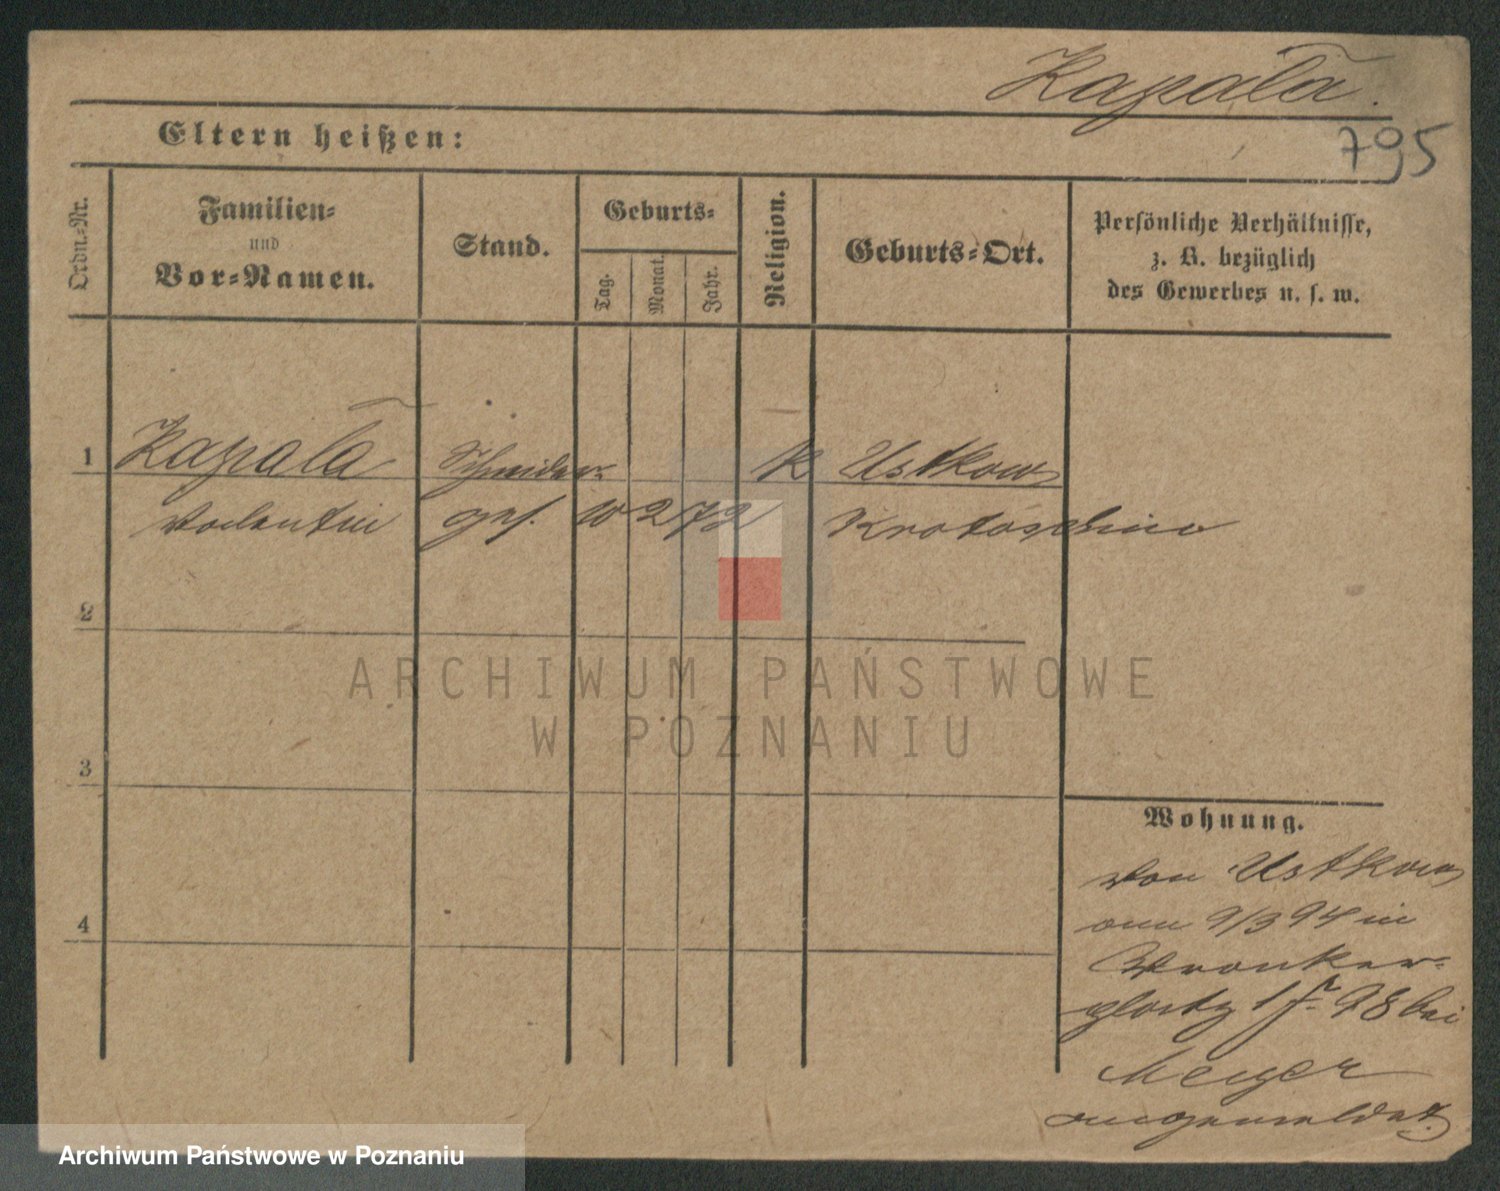 Kapała.
795
Eltern heißen:
Ordn.-Nr.
Familien-
und
Vor-Namen.
Stand.
Geburts-
Tag.
Monat.
Jahr.
Religion.
Geburts-Ort.
Persönliche Verhältnisse,
z. B. bezüglich
des Gewerbes u. s. w.
1 Kapała Schneider- K Ustkow
Valentin ges. 10 2 72 Krotoschin
2
3
4
Wohnung.
von Ustkow
am 9/3 94 in
Wronker-
platz 1 98 bei
Meyer
angemeldet.
ARCHIWUM PAŃSTWOWE
W POZNANIU
Archiwum Państwowe w Poznaniu